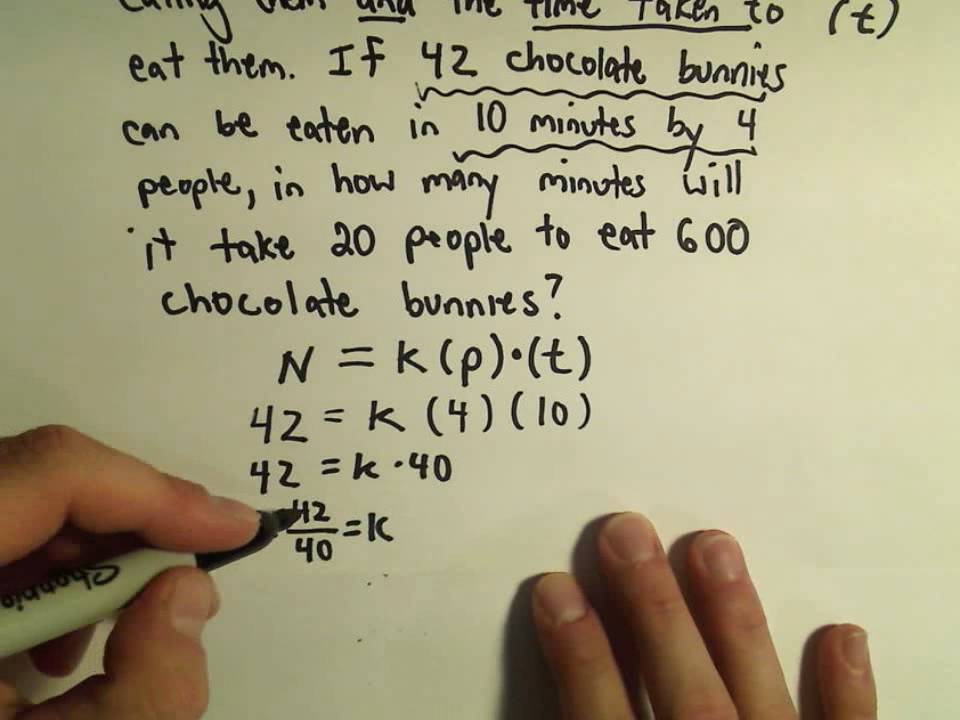 eating them and the time taken to (t)
eat them. If 42 chocolate bunnies
can be eaten in 10 minutes by 4
people, in how many minutes will
it take 20 people to eat 600
chocolate bunnies?
N = k(p)·(t)
42 = k (4)(10)
42 = k · 40
42/40 = k
Sharpie